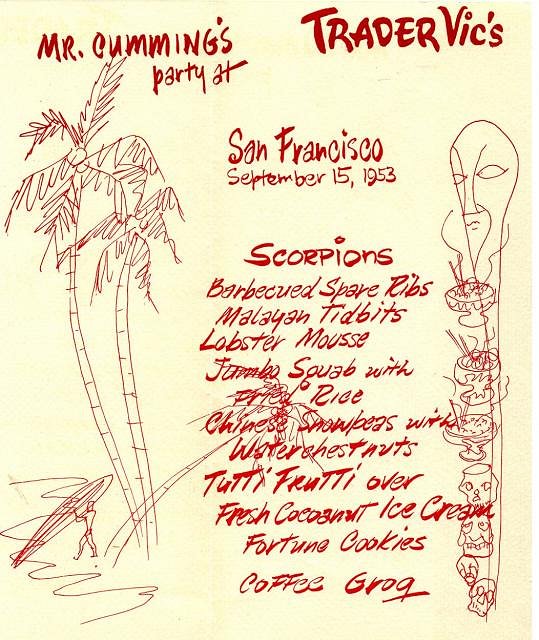 MR. CUMMING'S
party at
TRADER VIC'S
San Francisco
September 15, 1953
SCORPIONS
Barbecued Spare Ribs
Malayan Tidbits
Lobster Mousse
Jumbo Squab with
Fried Rice
Chinese Snowpeas with
Waterchestnuts
TUTTI FRUTTI over
Fresh Cocoanut Ice Cream
Fortune Cookies
COFFEE GROG